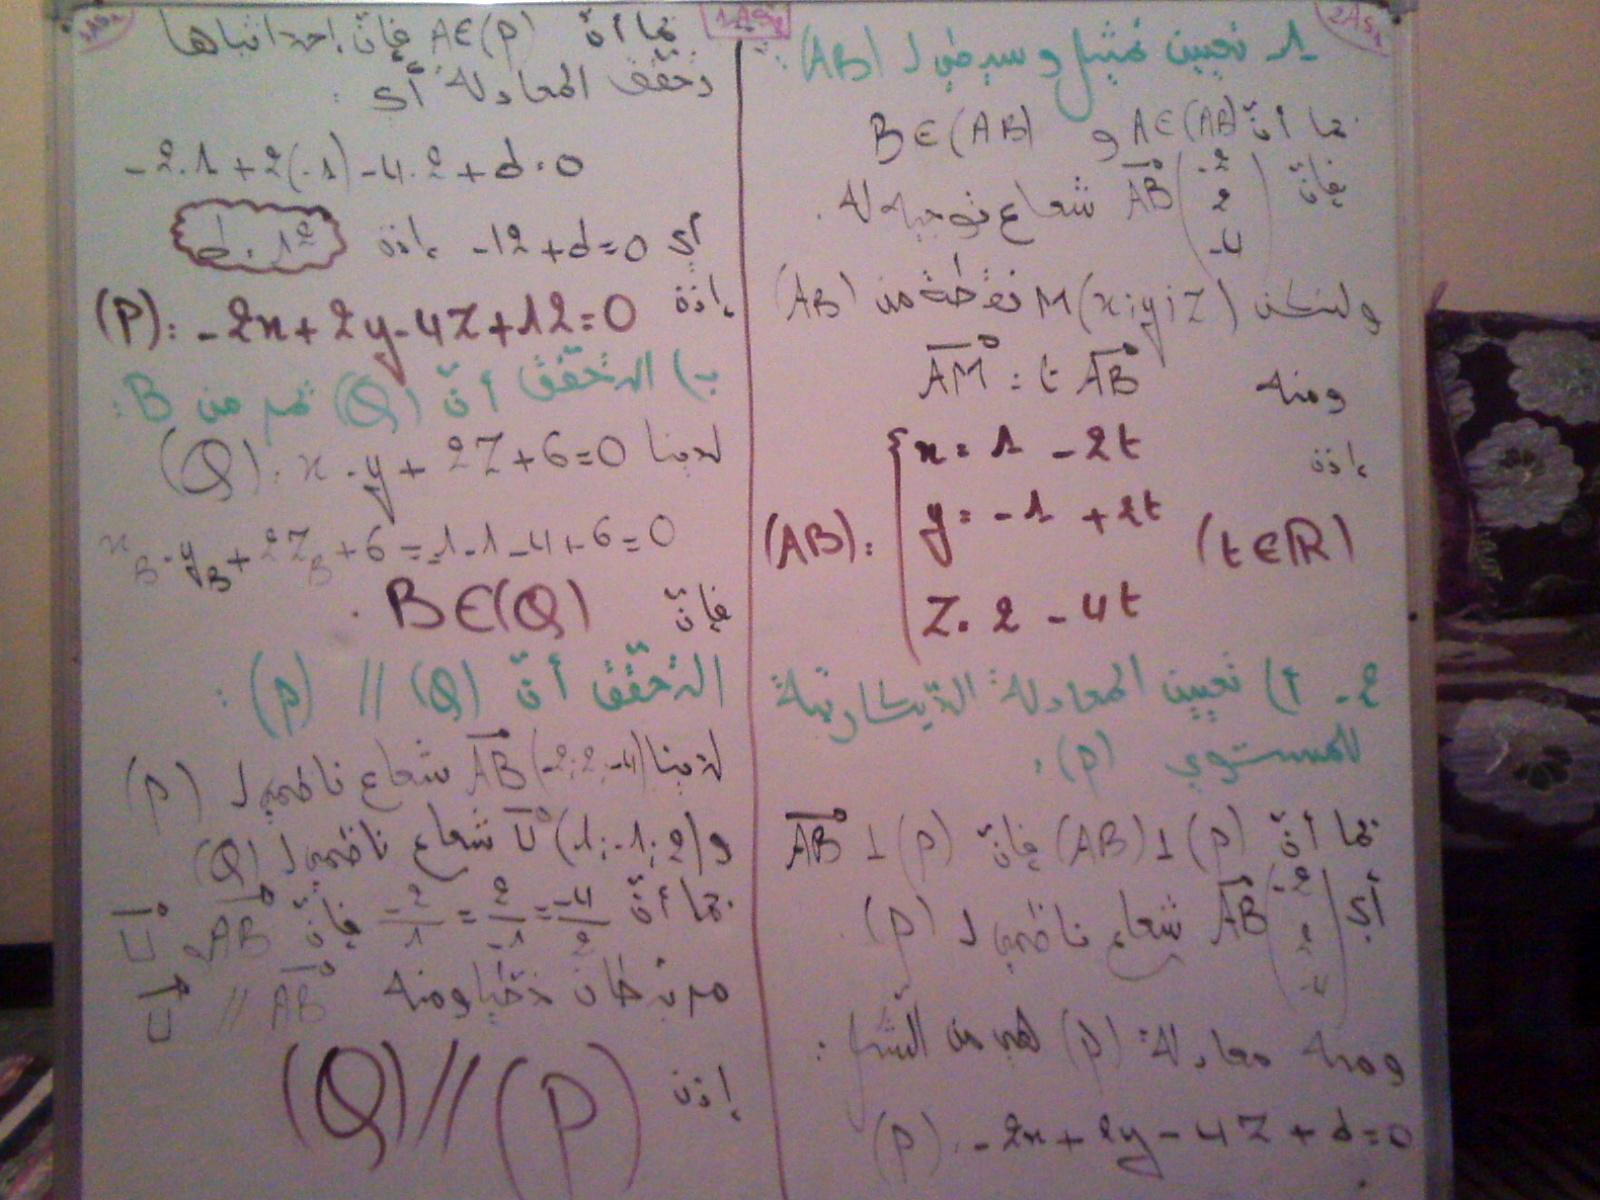 2AS1
1- تعيين تمثيل وسيطي ل (AB) :
بما أنّ A∈(AB) و B∈(AB)
فإنّ AB (-2 2 -4) شعاع توجيه له .
ولتكن M(x;y;z) نقطة من (AB)
ومنه AM = t AB
إذن
(AB): { x = 1 - 2t
y = -1 + 2t (t∈ℝ)
z = 2 - 4t
2- أ) تعيين المعادلة الديكارتية
للمستوي (P) .
بما أنّ (P)⊥(AB) فإنّ AB ⊥ (P)
أي AB (-2 2 -4) شعاع ناظمي ل (P) .
ومنه معادلة (P) هي من الشكل :
(P): -2x + 2y - 4z + d = 0
1AS2
بما أنّ A∈(P) فإنّ إحداثياها
تحقق المعادلة أي :
-2·1 + 2(-1) - 4·2 + d = 0
أي -12 + d = 0 إذن d = 12
إذن (P): -2x + 2y - 4z + 12 = 0
ب) التحقق أنّ (Q) تمر من B :
لدينا (Q): x - y + 2z + 6 = 0
xB - yB + 2zB + 6 = -1 - 1 - 4 + 6 = 0
فإنّ B∈(Q) .
التحقق أنّ (Q) // (P) :
لدينا AB (-2;2;-4) شعاع ناظمي ل (P)
و U (1;-1;2) شعاع ناظمي ل (Q)
بما أنّ -2/1 = 2/-1 = -4/2 فإنّ AB و U
مرتبطان خطيا ومنه AB // U
إذن (Q) // (P)